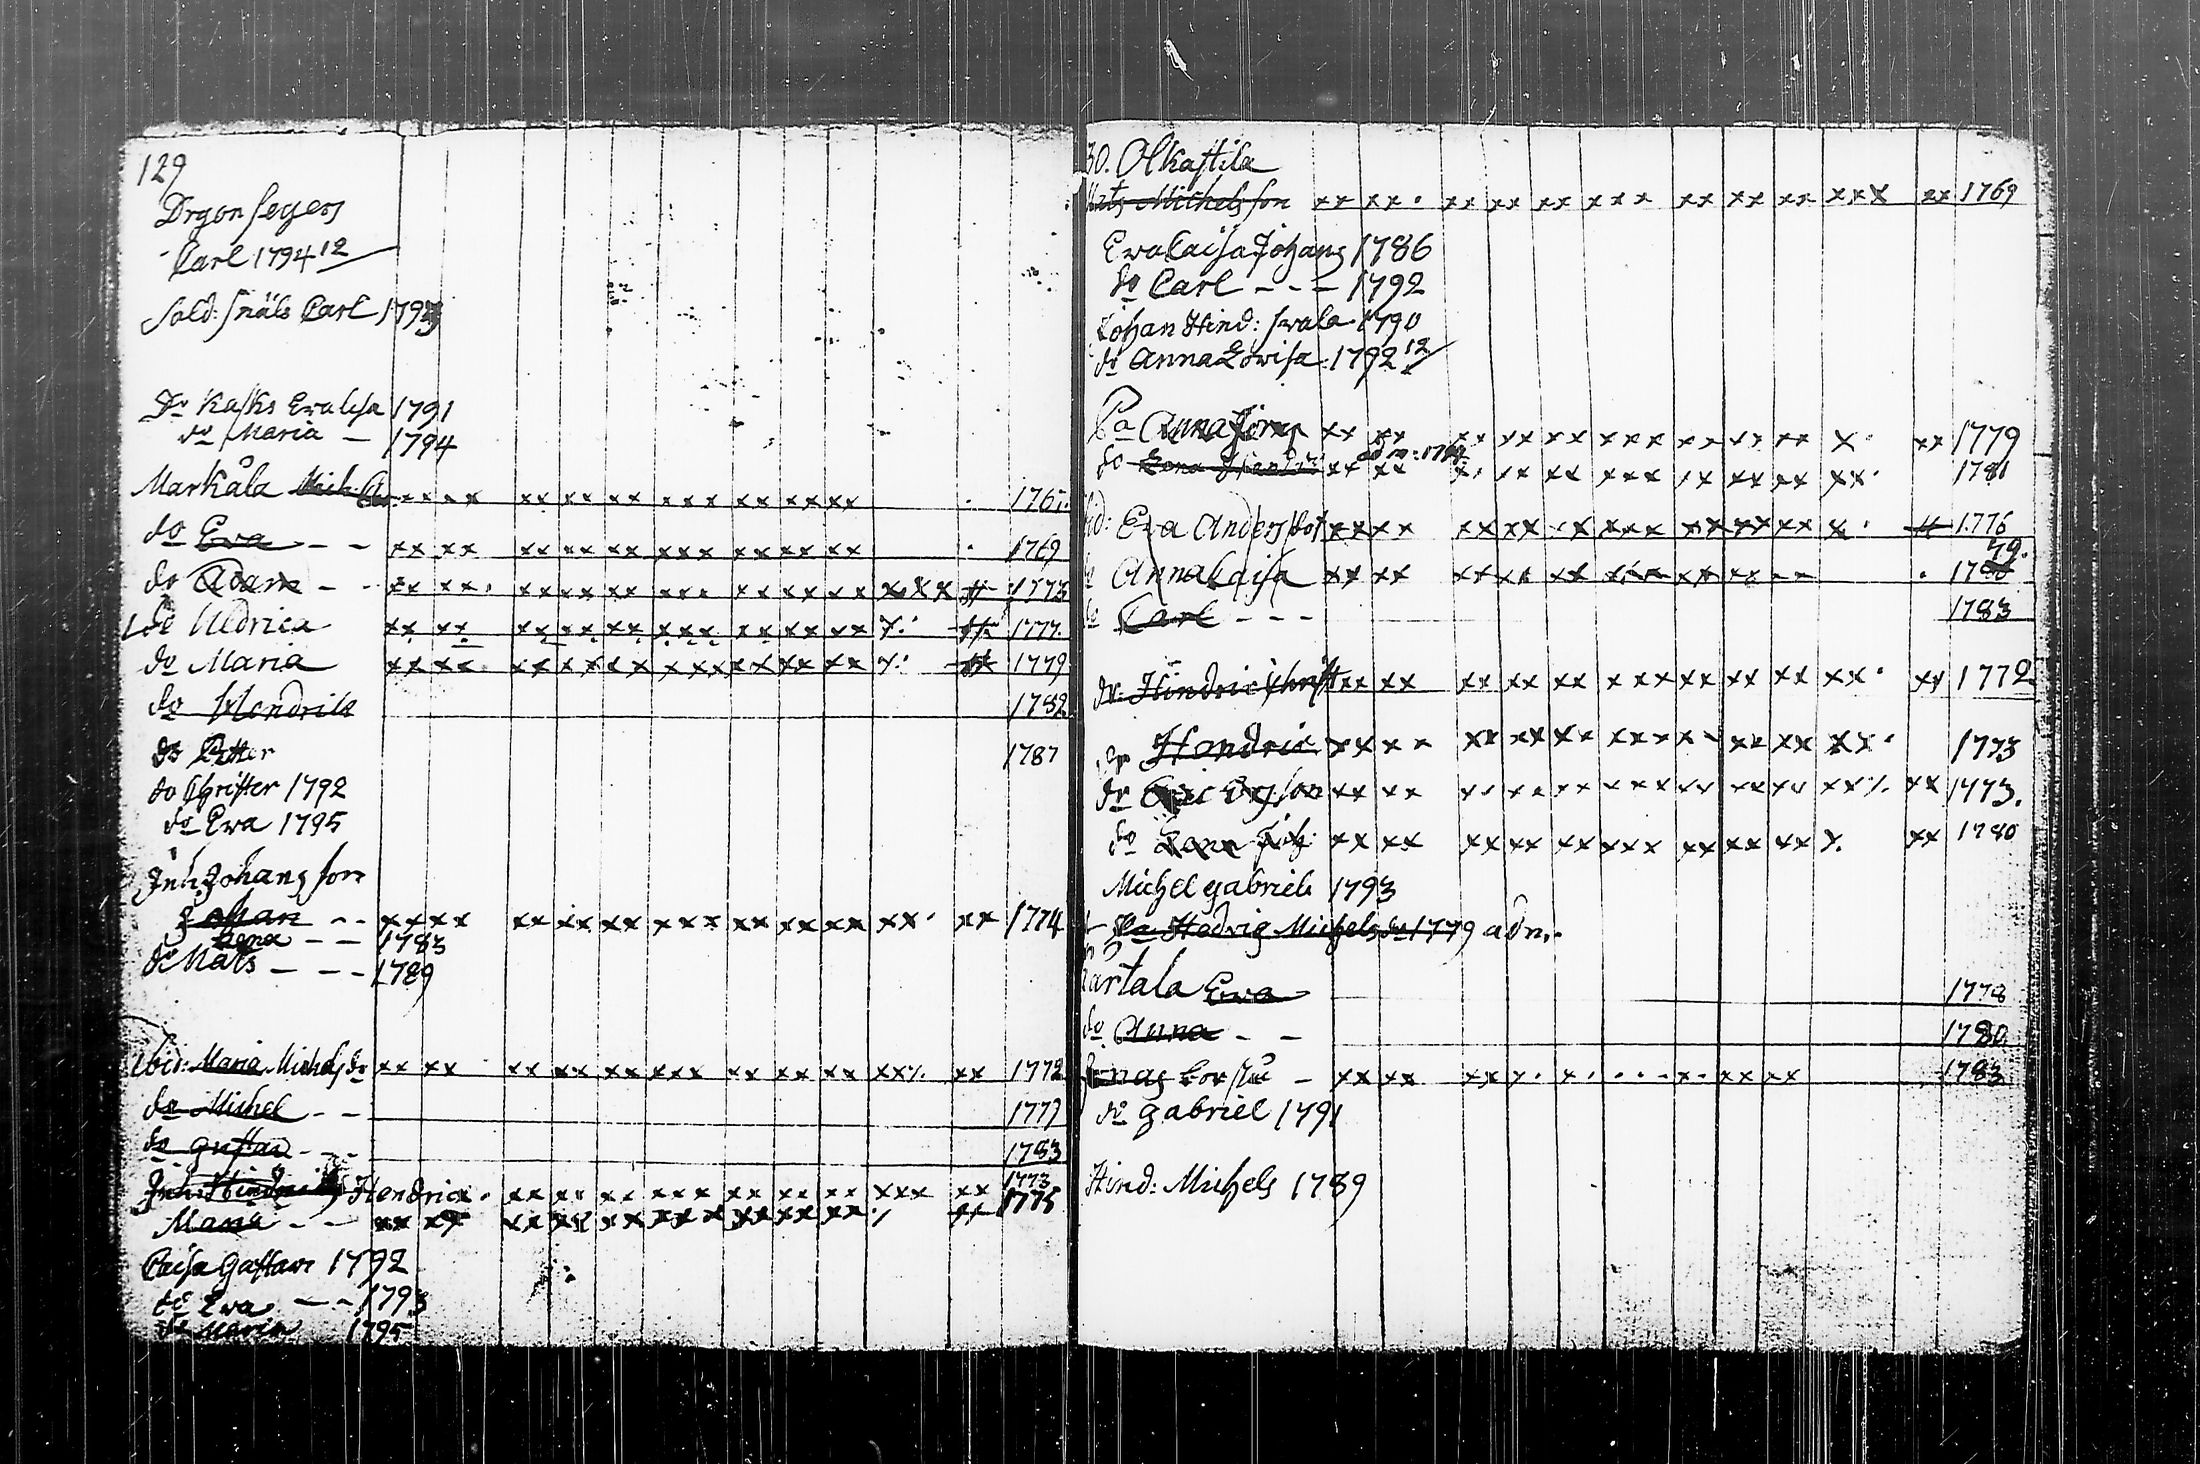 129
Drgon segers
Carl 1794 12
Sold: snäls Carl 1793
Dr Kasks Eva Lisa 1791
do Maria — 1794
Markåla Mich: xx xx xx xx xx xxx xx xx xx . 176
do Eva - - xx xx xx xx xx xxx xx xx xx . 1769
do Adam - - xx xx. xx xx xx xxx xx xx xx xxx # 1773
do Uldrica xx xx xx xx xx xxx xx xx xx 1777.
do Maria xx xx xx xx xx xxx xx xx xx 1779
do Hendrik 1782
do Petter 1787
do Christer 1792
do Eva 1795
Inh: Johans son
Johan - - xx xx xx xx xx xxx xx xx xx xx. xx 1774
Lena - - 1783
do Mats - - - 1789
Ibid: Maria Michels dr xx xx xx xx xx xxx xx xx xx xx xx 1772
do Michel - - 1777
do Gustav - - - 1783
Hendric. xx xx xx xxx xx xx xx xxx xx 1773
Maria - - xx xx xx xx xx xxx xx xx xx 1775
Caisa Gustavs 1792
do Eva — - 1793
do Maria 1795
30. Olkastila
Mats Michelsson xx xx. xx xx xx xxx xx xx xx xxx xx 1769
Eva Caisa Johans 1786
do Carl - - - 1792
Johan Hind: svala 1790
do Anna Lovisa 1792 12
Pa Anna xx xx xx xx xx xxx xx xx xx x. xx 1779
do Lena xx xx xx xx xx xxx xx xx xx xx. 1781
Eva Anders dot xx xx xx xx xx xxx xx xx xx x. # 1776
79.
Anna Caisa xx xx xx xx xx xxx xx xx .
do Carl - - - 1783
do Hindric Christ xx xx xx xx xx xxx xx xx xx xx. xx 1772
do Hendric xx xx xx xx xx xxx xx xx xx xx. 1773
do Eric xx xx xx xx xx xxx xx xx xx xx xx 1773.
do Lena Joh: xx xx xx xx xx xxx xx xx xx x. xx 1780
Michel gabriels 1793
Pa Hedvig Michels dr 1779 adm.
Kartala Eva 1778
do Anna - - 1780
Jonas - xx xx xx xx xx 1783
do gabriel 1791
Hind: Michels 1789